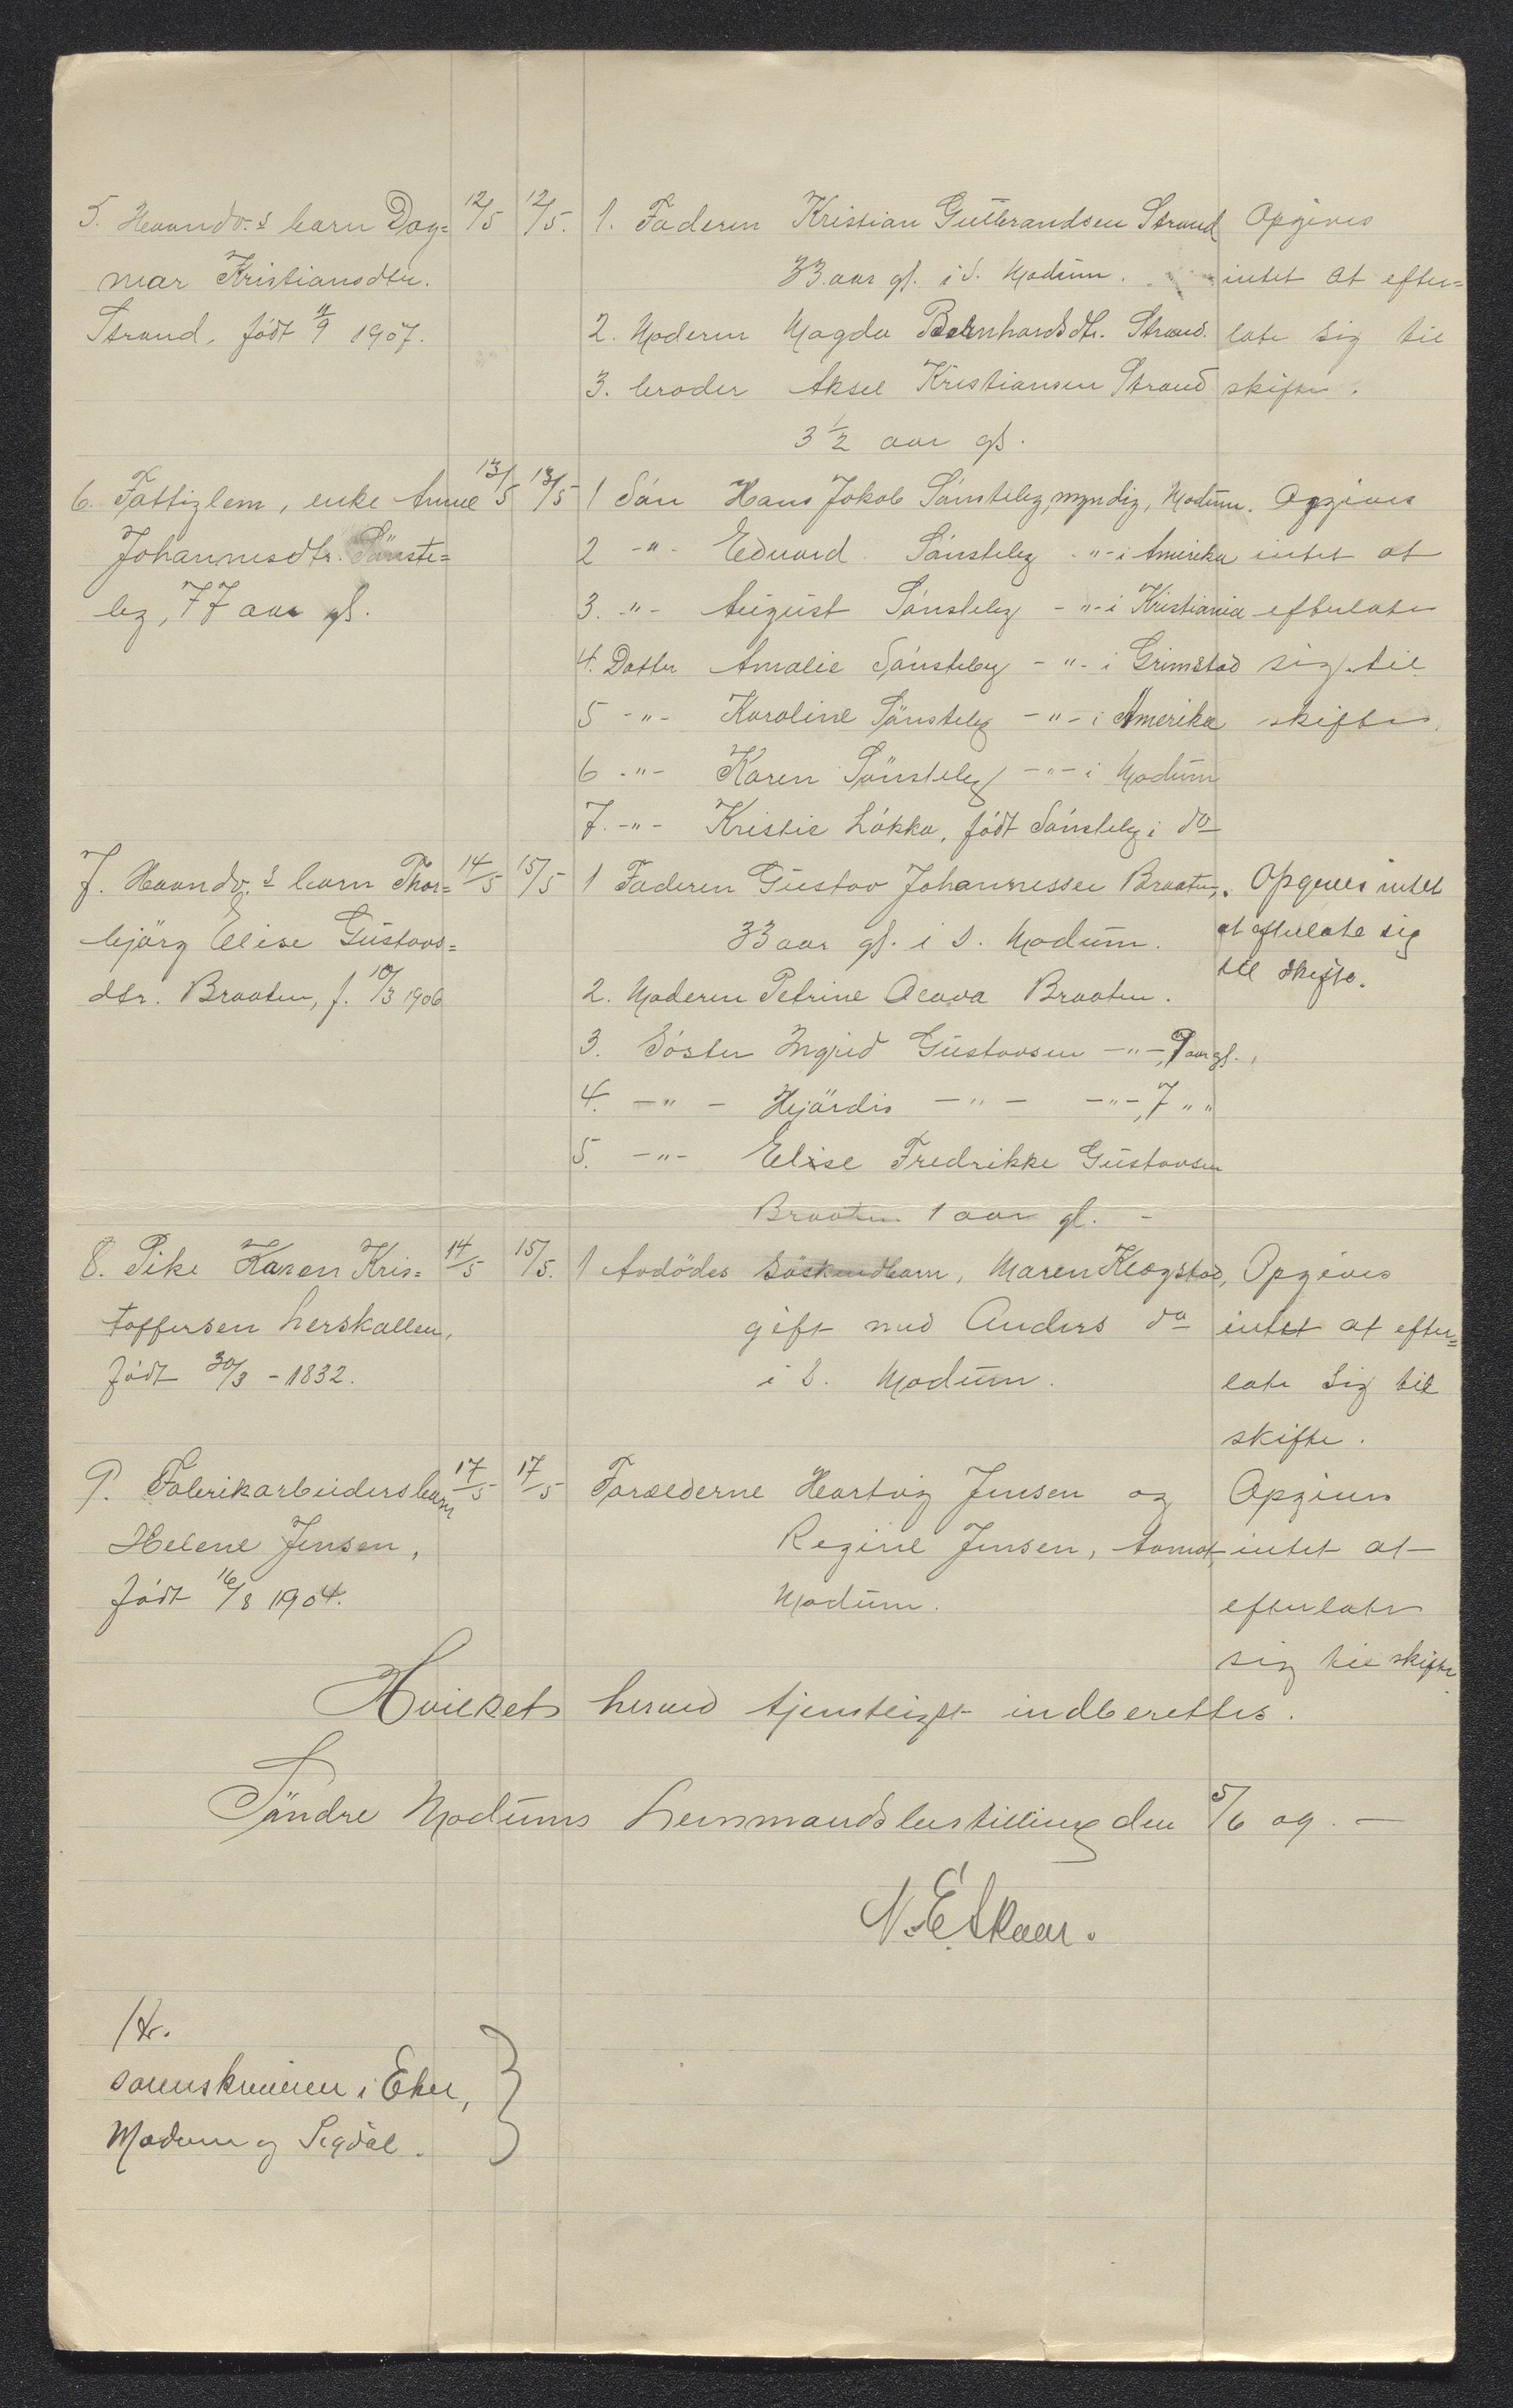 5. Haandv.s barn Dag= 12/5 12/5. 1. Faderen Kristian Gulbrandsen Strand Opgives
mar Kristiansdtr. 33 aar gl. i S. Modum. intet at efter=
Strand, født 11/9 1907. 2. Moderen Magda Bernhardsdtr. Strand. late sig til
3. broder Aksel Kristiansen Strand skifte.
3 1/2 aar gl.
6. Fattiglem, enke Anne 13/5 13/5 1 Sön Hans Jakob Sönsteby, myndig, Modum. Opgives
Johannesdtr. Sönste= 2 -"- Edvard Sönsteby -"- i Amerika intet at
by, 77 aar gl. 3. -"- August Sönsteby -"- i Kristiania efterlate
4. Datter Amalie Sönsteby -"- i Grimstad sig til
5 -"- Karoline Sönsteby -"- i Amerika skifte.
6 -"- Karen Sönsteby -"- i Modum
7. -"- Kristie Lökka, födt Sönsteby i do
7. Haandv.s barn Thor= 14/5 15/5 1 Faderen Gustav Johannessen Braaten, Opgives intet
björg Elise Gustavs= 33 aar gl. i S. Modum. at efterlate sig
dtr. Braaten, f. 10/3 1906 2. Moderen Petrine Olava Braaten. til skifte.
3. Söster Ingrid Gustavsen -"-, 9 aar gl.
4. -"- Hjördis -"- -"-, 7 " "
5. -"- Elise Fredrikke Gustavsen
Braaten 1 aar gl. -
8. Pike Karen Kris= 14/5 15/5. 1 Avdödes Söskendbarn, Maren Klogstad, Opgives
toffersen Lerskallen, gift med Anders do intet at efter=
födt 30/3 - 1832. i S. Modum. late sig til
skifte.
9. Fabrikarbeiders barn 17/5 17/5 Forælderne Hartvig Jensen og Opgives
Helene Jensen, Regine Jensen, Aamot, intet at
födt 16/8 1904. Modum. efterlate
sig til skifte.
Hvilket herved tjenstligst indberettes.
Söndre Modums Lensmandsbestilling den 5/6 09. -
N. E. Skaar.
Hr.
sorenskriveren i Eker,
Modum og Sigdal.